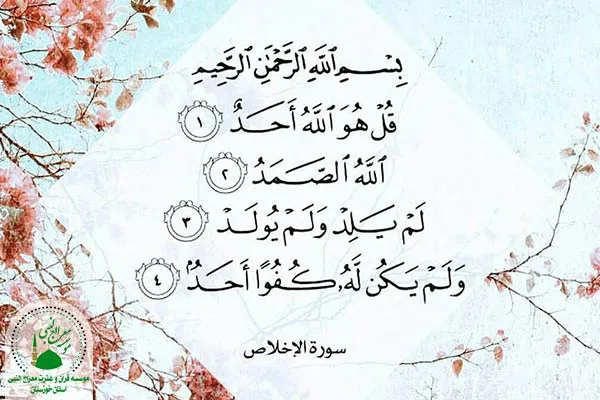 بِسْمِ ٱللَّهِ ٱلرَّحْمَٰنِ ٱلرَّحِيمِ
قُلْ هُوَ ٱللَّهُ أَحَدٌ ١
ٱللَّهُ ٱلصَّمَدُ ٢
لَمْ يَلِدْ وَلَمْ يُولَدْ ٣
وَلَمْ يَكُن لَّهُۥ كُفُوًا أَحَدٌۢ ٤
سورة الإخلاص
موسسه قرآن و عترت معراج النبی
استان خوزستان